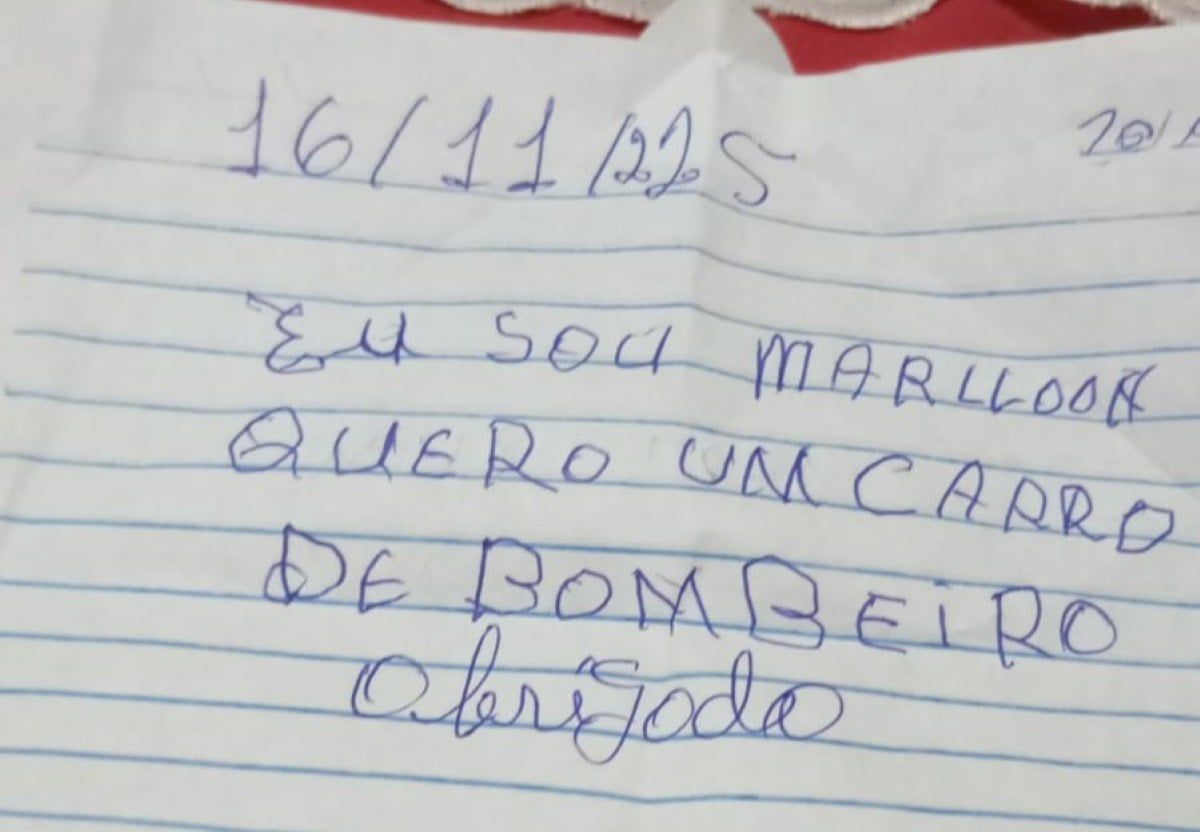 16/11/225
EU SOU MARLLOON
QUERO UM CARRO
DE BOMBEIRO
obrigado